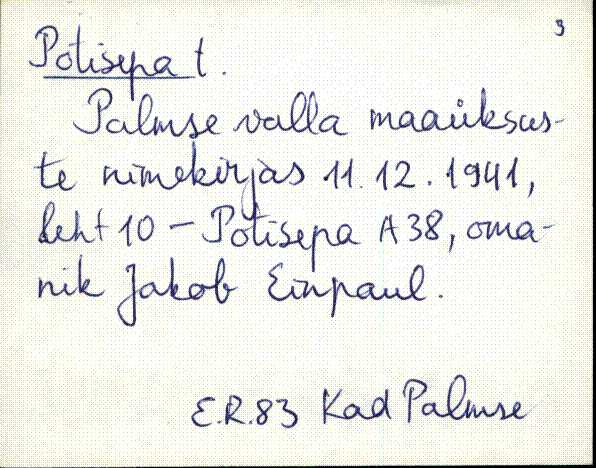 9
Potisepa t.
Palmse valla maaüksus-
te nimekirjas 11.12.1941,
leht 10 - Potisepa A38, oma-
nik Jakob Einpaul.
E.R.83 Kad Palmse